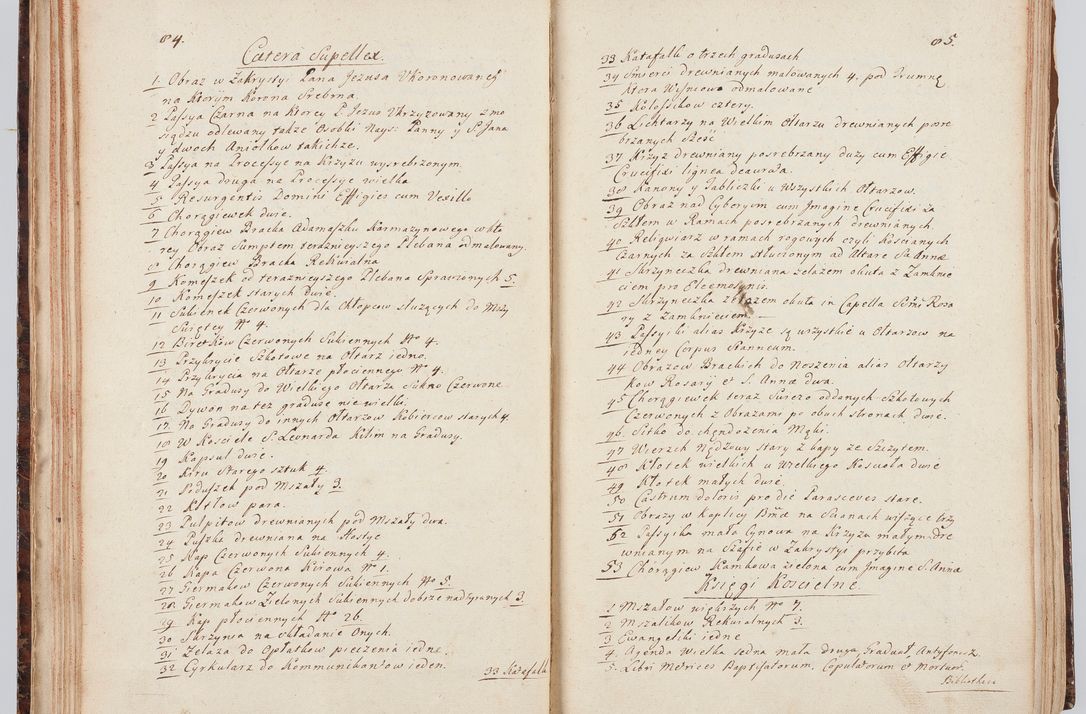 84.
Cætera Supellex.
1. Obraz w Zakrystyi Pana Jezusa Ukoronowane°
na Ktorym Korona Srebrna
2 Passya Czarna na Ktorey P. Jezus Ukrzyzowany z mo
siądzu odlewany także Osobki Nays: Panny y S. Jana
y dwoch Aniołkow takichże.
3 Passya na Processye na Krzyżu wysrebrzonym.
4 Passya druga na Processye wielka
5 Resurgentis Domini Effigies cum Vexillo
6 Chorągiewek dwie.
7 Chorągiew Bracka Adamaszku Karmazynowego w kto
rey Obraz Sumptem teraznieyszego Plebana odmalowany.
8 Chorągiew Bracka Rekwialna
9 Komeszek od teraznieyszego Plebana Sprawionych 5.
10 Komeszek starych dwie.
11 Sukienek Czerwonych dla Chłopcow służących do Mszy
Swiętey Nº 4.
12 Biretkow Czerwonych Sukiennych Nº 4.
13 Przykrycie Szkotowe na Ołtarz iedno.
14 Przykrycia na Ołtarze płocienne Nº 4.
15 Na Gradusy do Wielkiego Ołtarza Sukno Czerwone
16 Dywon na też graduse nie wielki.
17 Na Gradusy do innych Ołtarzow Kobiercow starych 4.
18 W Kosciele S. Leonarda Kilim na Gradusy.
19 Kapsul dwie.
20 Kiru Starego sztuk 4.
21 Poduszek pod Mszały 3.
22 Kotłow para.
23 Pulpitow drewnianych pod Mszały dwa.
24 Puszka drewniana na Hostye
25 Kap Czerwonych Sukiennych 4.
26 Kapa Czerwona Kirowa Nº 1.
27 Giermakow Czerwonych Sukiennych Nº 5.
28 Giermakow Zielonych Sukiennych dobrze nadgranych 3.
29 Kap płociennych Nº 26.
30 Skrzynia na składanie Onych.
31 Zelaza do Opłatkow pieczenia iedne.
32 Cyrkularz do Kommunikantow ieden.
33 Katafalk
85.
33 Katafalk o trzech gradusach
34 Smierci drewnianych malowanych 4. pod Trumnę
Ktora Wisniowo odmalowane
35 Kulessikow cztery.
36 Lichtarzy na Wielkim Ołtarzu drewnianych posre
brzanych Sześć
37 Krzyż drewniany posrebrzany duzy cum Effigie
Crucifixi lignea deaurata.
38 Kanony y Tabliczki u Wszystkich Ołtarzow.
39 Obraz nad Cyboryom cum Imagine Crucifixi za
Szkłem w Ramach posrebrzanych drewnianych.
40 Religwiarz w ramach rogowych czyli Kościanych
Czarnych za Szkłem stłuczonym ad Altare S. Annæ
41 Skrzyneczka drewniana zelazem okuta z Zamknie
ciem pro Eleemosynis.
42 Skrzyneczka zelazem okuta in Capella Ssmi Rosa
ry z Zamknieciem.
43 Passyiki alias Krzyże są wszystkie u Ołtarzow na
iedney Corpus Stanneum.
44 Obrazow Brackich do Noszenia alias Ołtarzy
kow Rosary et S. Annæ dwa.
45 Chorągiewek teraz Swiezo oddanych szkotowych
Czerwonych z Obrazami po obuch stronach dwie.
46. Sitko do chędożenia Mąki.
47 Wierzch Nędzowy stary z kapy ze Szczytem.
48 Kłotek wielkich u Wielkiego Kosciola dwie
49 Kłotek małych dwie.
50 Castrum doloris pro die Parasceves stare.
51 Obrazy w Kaplicy Bnæ na Scianach wiszące trzy
52 Passyika mała Cynowa na Krzyżu małym dre
wnianym na Szafie w Zakrystyi przybita
53 Chorągiew Kamkowa zielona cum Imagine S. Annæ
Księgi Koscielne.
1 Mszałow większych Nº 7.
2 Mszalikow Rekwialnych 3.
3 Ewangeliki iedne
4. Agenda Wielka iedna mała druga, Graduał, Antyfonarz
5. Libri Metrices Baptisatorum, Copulatorum et Mortuor:
Bibliotheca